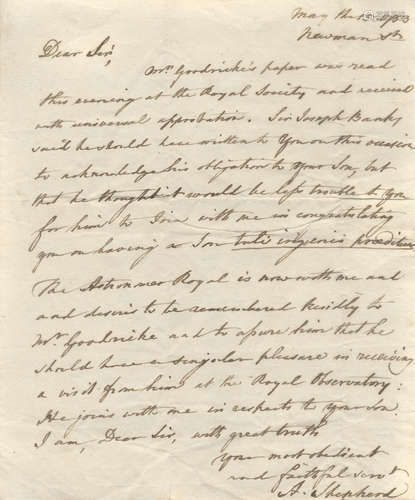 May the 15, 1783
Newman St.
Dear Sir,
Mr. Goodricke's paper was read
this evening at the Royal Society and received
with universal approbation. Sir Joseph Banks
said he should have written to You on this occasion
to acknowledge his obligation to your Son, but
that he thought it would be less trouble to you
for him to Join with me in congratulating
you on having a Son tali ingenio præditum
The Astronomer Royal is now with me and
and desires to be remembered kindly to
Mr. Goodricke and to assure him that he
should have a singular pleasure in receiving
a visit from him at the Royal Observatory:
He joins with me in respects to your Son.
I am, Dear Sir, with great truth
your most obedient
and faithful servt
A. Shepherd